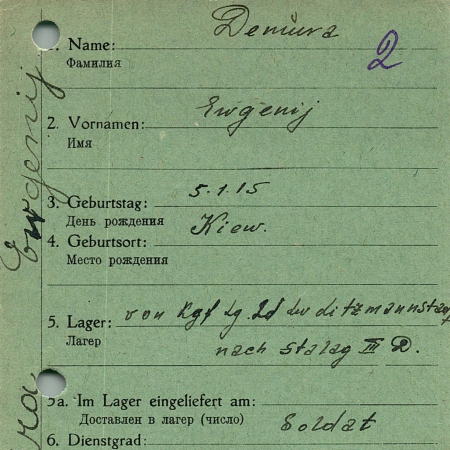 2
1. Name: Demura
Фамилия
2. Vornamen: Ewgenij
Имя
3. Geburtstag: 5.1.15
День рождения
4. Geburtsort: Kiew.
Место рождения
5. Lager: von Kgf Lg.
Лагерь
nach Stalag III D.
5a. Im Lager eingeliefert am:
Доставлен в лагер (число)
6. Dienstgrad: Soldat
Ewgenij